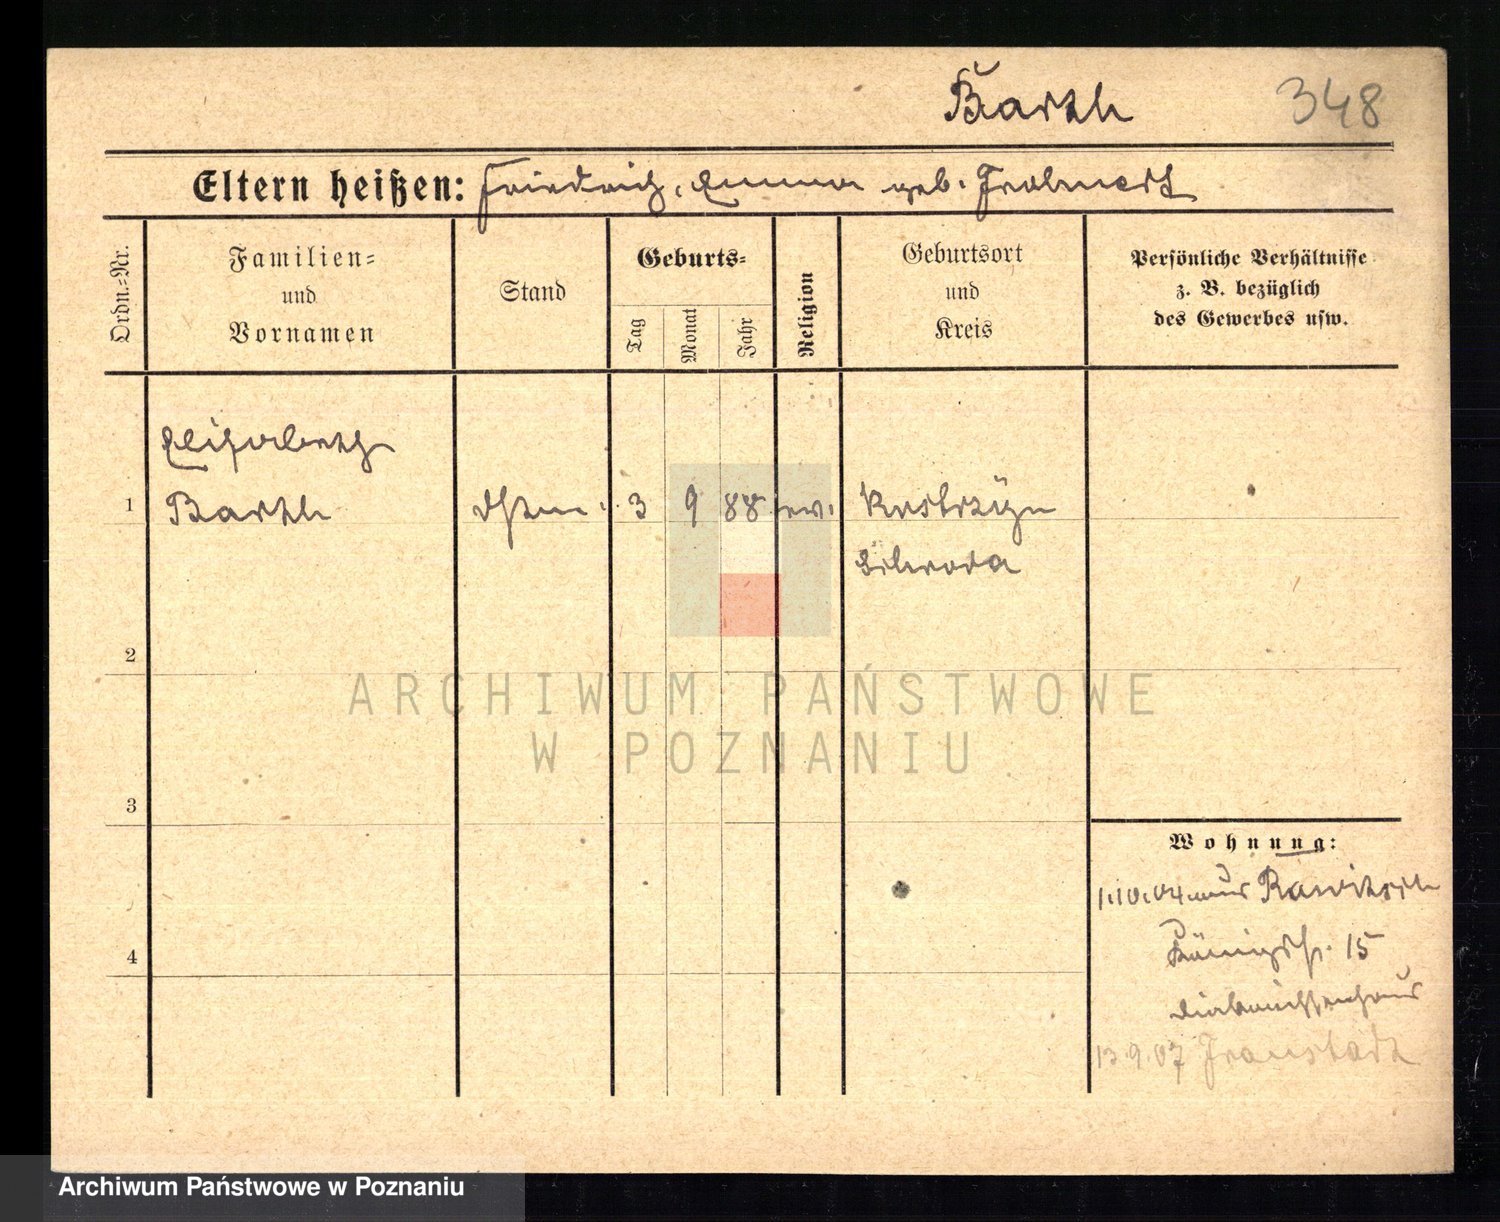 Barth 348
Eltern heißen: Friedrich, Emma geb. Frohmert
Ordn.-Nr.
Familien-
und
Vornamen
Stand
Geburts-
Tag
Monat
Jahr
Religion
Geburtsort
und
Kreis
Persönliche Verhältnisse
z. B. bezüglich
des Gewerbes usw.
Elisabeth
1 Barth 3 9 88 ev. Kostrzyn
Schroda
2
3
4
Wohnung:
1.10.04 aus Rawitsch
Königstr. 15
Diakonissenhaus
13.9.07 Fraustadt
ARCHIWUM PAŃSTWOWE
W POZNANIU
Archiwum Państwowe w Poznaniu